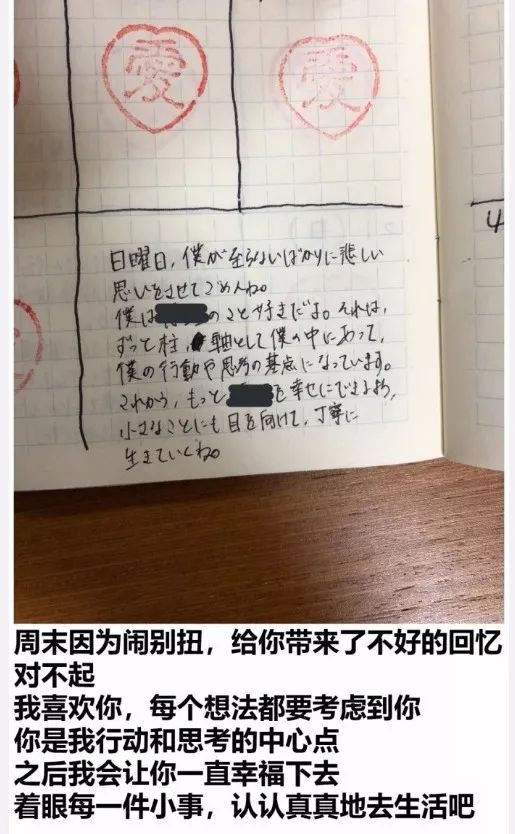 愛
愛
4
日曜日、僕が至らないばかりに悲しい
思いをさせてごめんね。
僕は のこと好きだよ。それは、
ずっと柱、軸として僕の中にあって、
僕の行動や思考の基点になっています。
これから、もっと を幸せにできるよう、
小さなことにも目を向けて、丁寧に
生きていくね。
周末因为闹别扭，给你带来了不好的回忆
对不起
我喜欢你，每个想法都要考虑到你
你是我行动和思考的中心点
之后我会让你一直幸福下去
着眼每一件小事，认认真真地去生活吧